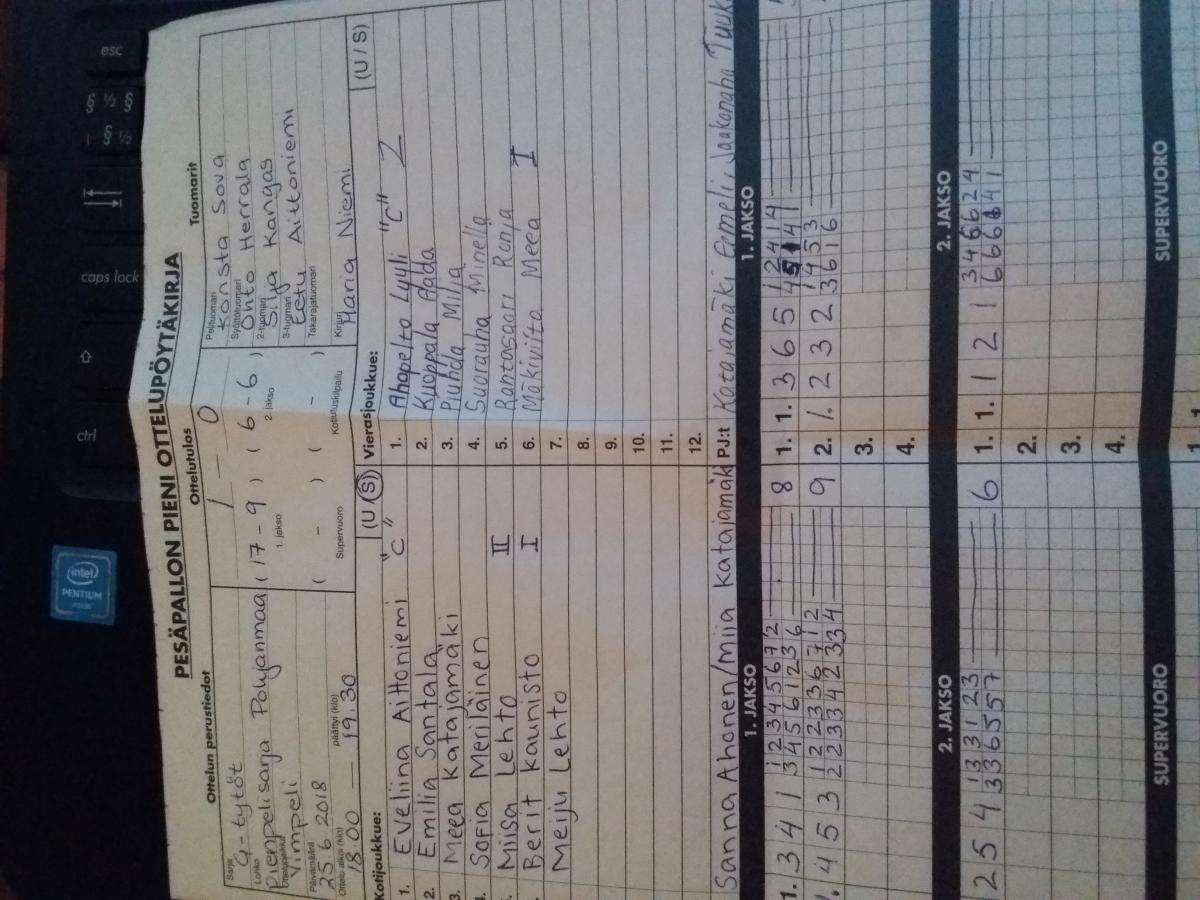 esc
§ ½ §
caps lock
ctrl
intel
PENTIUM
inside
PESÄPALLON PIENI OTTELUPÖYTÄKIRJA
Ottelun perustiedot
Sarja
G-tytöt
Lohko
Pienpelisarja Pohjanmaa
Ottelupaikka
Vimpeli
Päivämäärä
25.6.2018
Ottelu alkoi (klo) päättyi (klo)
18.00 — 19.30
Ottelutulos
1 - 0
(17 - 9) (6 - 6)
1. jakso 2. jakso
( - ) ( - )
Supervuoro Kotiutuskilpailu
Tuomarit
Pelituomari
Konsta Sova
Syöttötuomari
Onto Herrala
2-tuomari
Silja Kangas
3-tuomari
Eetu Aittoniemi
Takarajatuomari
Kirjuri
Maria Niemi
Kotijoukkue: (U/S)
1. Eveliina Aittoniemi "C"
2. Emilia Santala
3. Meea Katajamäki
4. Sofia Meriläinen
Miisa Lehto II
Berit Kaunisto I
Meiju Lehto
Vierasjoukkue: (U/S)
1. Ahopelto Lyyli "C" 2
2. Kuoppala Aada
3. Piuhda Milia
4. Suorauha Minella
5. Rantasaari Ronja
6. Mäkiviita Meea I
7.
8.
9.
10.
11.
12.
Sanna Ahonen/Miia Katajamäki
PJ:t Katajamäki Emeli, Jaakonaho Tuuk
1. JAKSO
1. 3 4 1 1 2 3 4 5 6 7 2 8
3 4 5 6 1 2 3 6
4 5 3 1 2 2 3 3 6 7 1 2 9
2 2 3 3 4 2 3 3 4
1. JAKSO
1. 1. 3 6 5 1 2 4 1 4
4 5 1 4 1
2. 1. 2 3 2 1 4 5 3
3 6 1 6
3.
4.
2. JAKSO
2 5 4 1 3 3 1 2 3 6
3 3 6 5 5 7
2. JAKSO
1. 1. 1 2 1 3 4 6 6 2 4
6 6 6 6 4 1
2.
3.
4.
SUPERVUORO
SUPERVUORO
1. 1